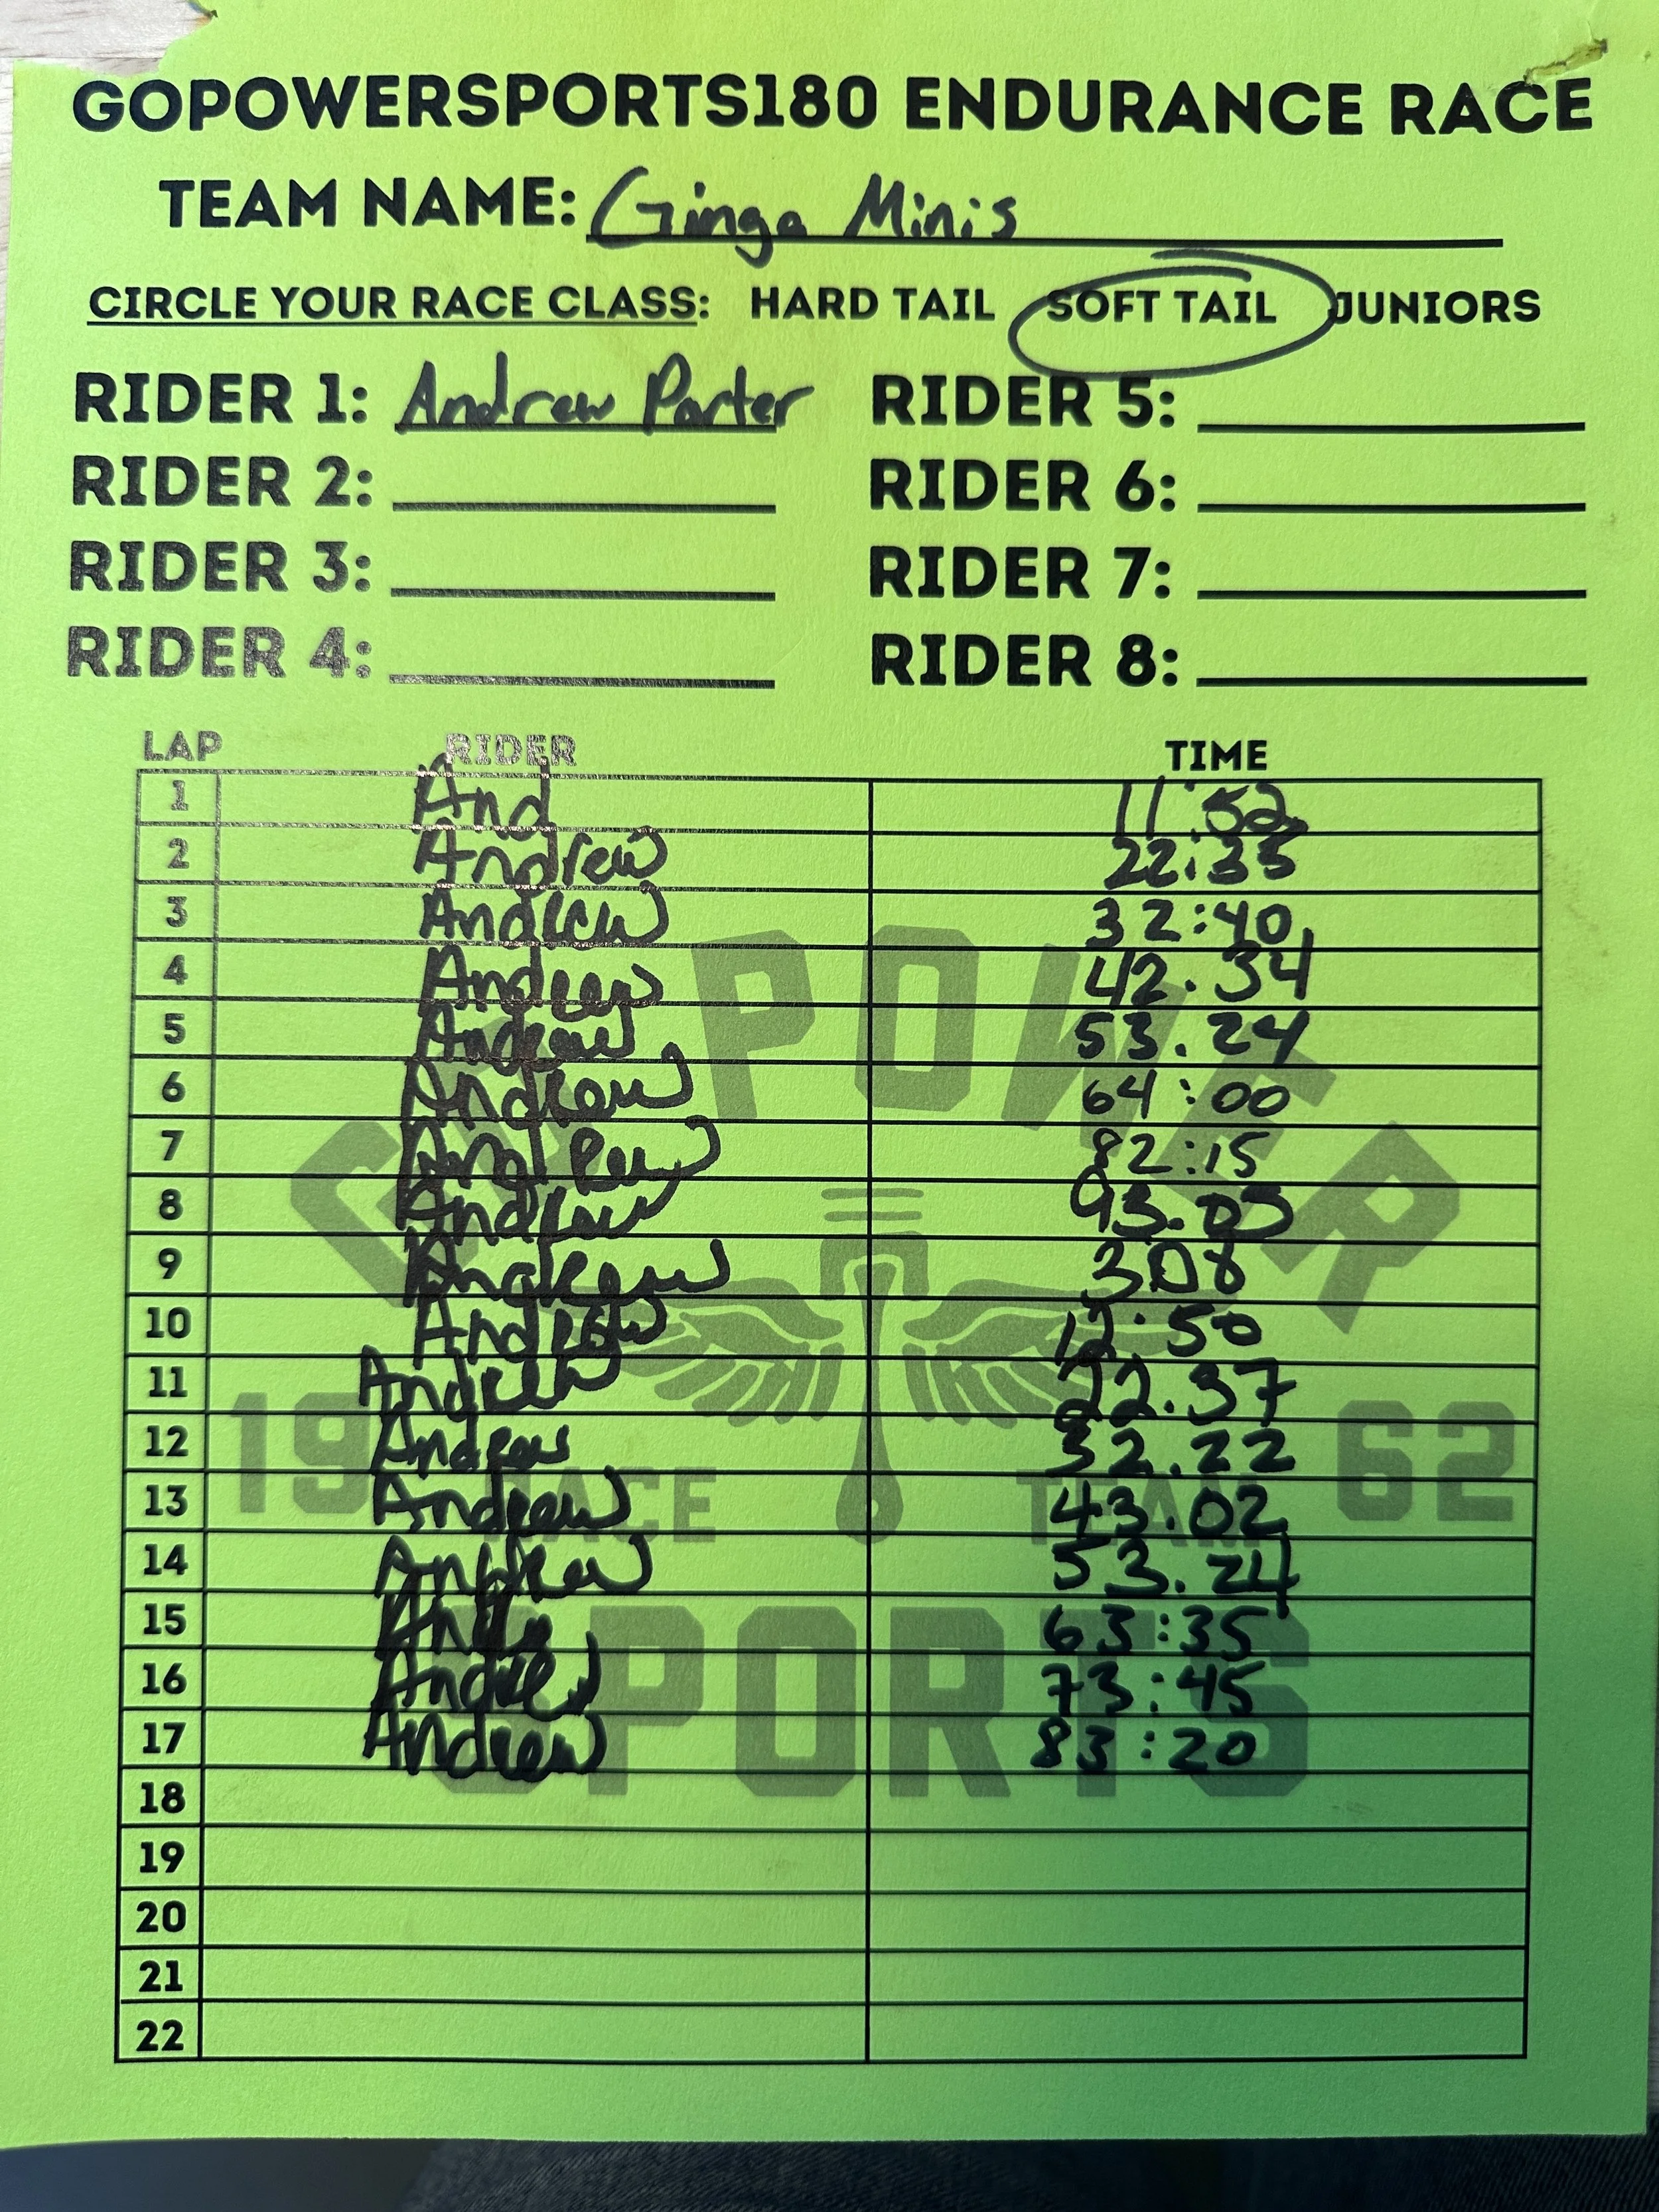 GOPOWERSPORTS180 ENDURANCE RACE
TEAM NAME: Ginga Minis
CIRCLE YOUR RACE CLASS: HARD TAIL SOFT TAIL JUNIORS
RIDER 1: Andrew Porter RIDER 5:
RIDER 2: RIDER 6:
RIDER 3: RIDER 7:
RIDER 4: RIDER 8:
LAP RIDER TIME
1 And 11:52
2 Andrew 22:35
3 Andrew 32:40
4 Andrew 42.34
5 Andrew 53.24
6 Andrew 64:00
7 Andrew 82:15
8 Andrew 93.03
9 Andrew 3.08
10 Andrew 12:50
11 Andrew 22.37
12 Andrew 32.22
13 Andrew 43.02
14 Andrew 53.24
15 63:35
16 Andrew 73:45
17 Andrew 83:20
18
19
20
21
22
GO POWER
19 62
RACE TEAM
SPORTS